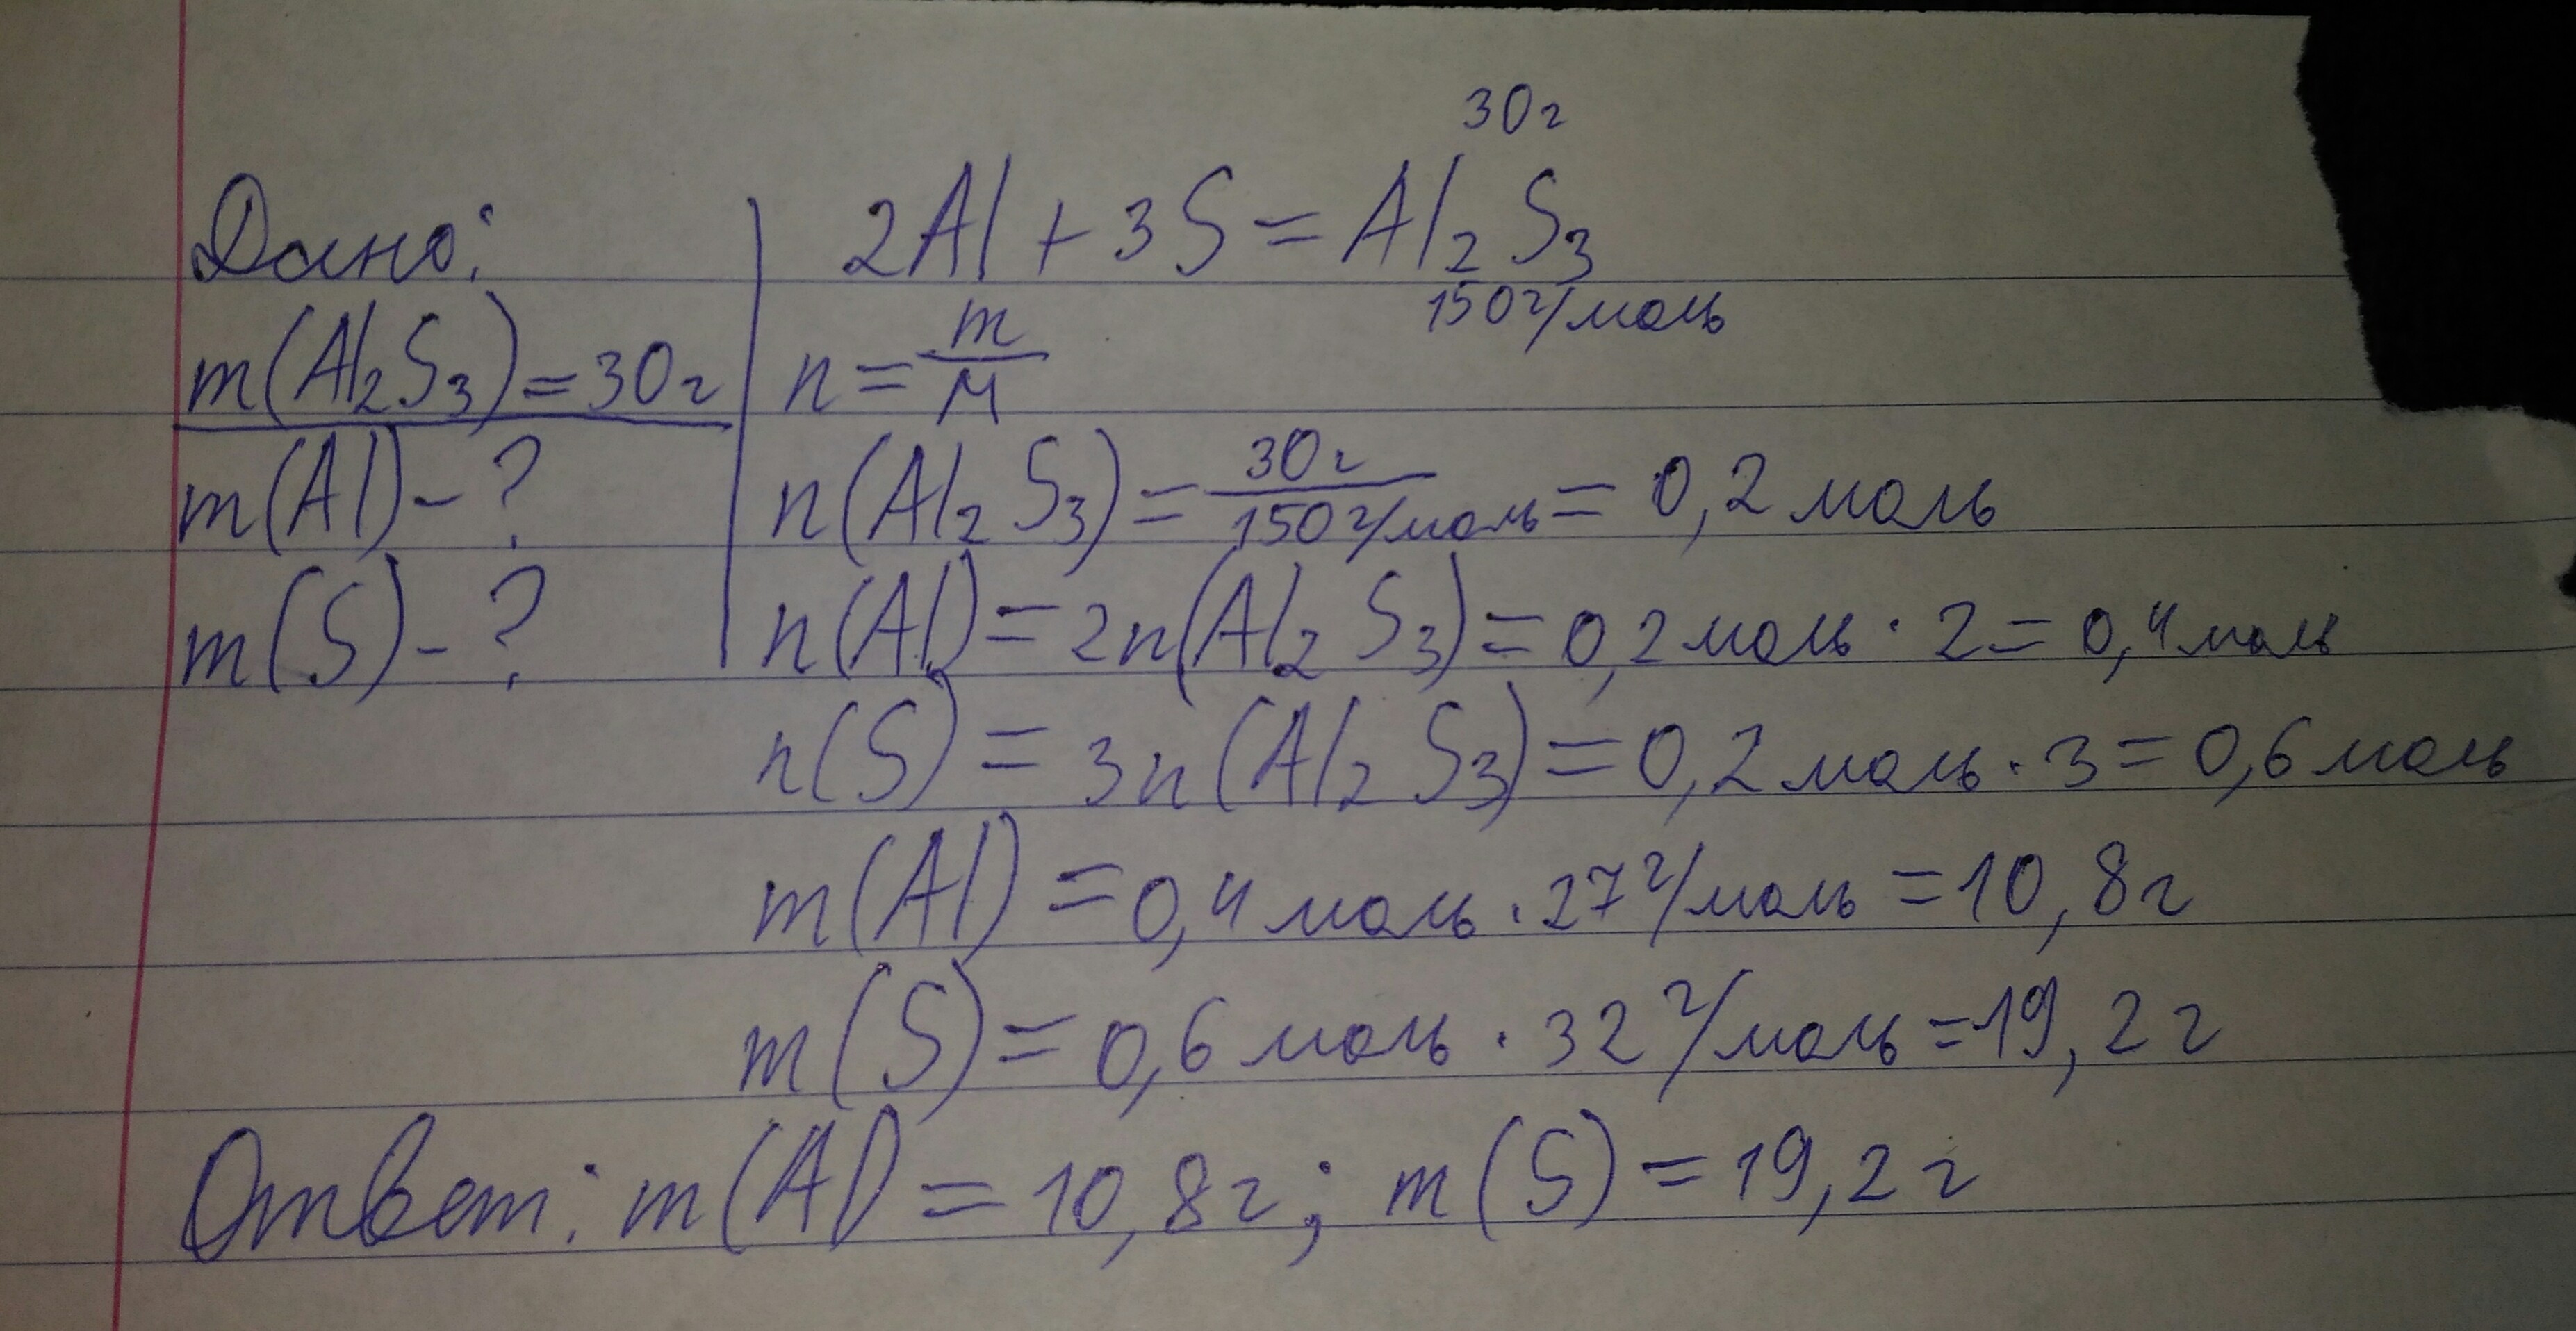 30г
Дано:
2Al + 3S = Al₂S₃
150г/моль
m(Al₂S₃) = 30г
n = m/M
m(Al) - ?
n(Al₂S₃) = 30г/150г/моль = 0,2 моль
m(S) - ?
n(Al) = 2n(Al₂S₃) = 0,2 моль · 2 = 0,4 моль
n(S) = 3n(Al₂S₃) = 0,2 моль · 3 = 0,6 моль
m(Al) = 0,4 моль · 27 г/моль = 10,8г
m(S) = 0,6 моль · 32 г/моль = 19,2 г
Ответ: m(Al) = 10,8г; m(S) = 19,2 г